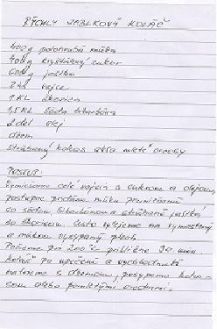 RÝCHLY JABLKOVÝ KOLÁČ
400g polohrubá múka
400g kryštálový cukor
600g jabĺk
2 vajce
1 KL škorica
1,5 KL sóda bikarbóna
2 del olej
džem
strúhaný kokos alebo mleté orechy
POSTUP:
Vymiešame celé vajcia s cukrom a olejom,
postupne pridáme múku premiešanú
so sódou bikarbónou a strúhané jablká
so škoricou. Cesto vylejeme na vymastený
a múkou vysypaný plech.
Pečieme pri 200°C približne 30 min.
Koláč po upečení a vychladnutí
natrieme s džemom, posypeme koko-
som alebo pomletými orechmi.